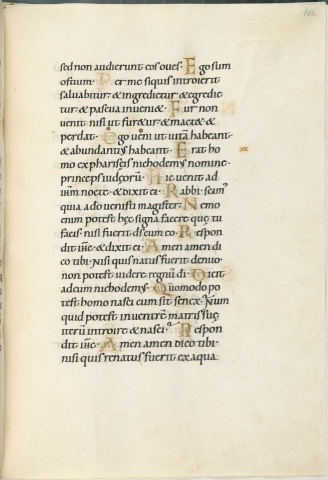 102
sed non audierunt eos oves· Ego sum
ostium· Per me si quis introierit
salvabitur· & ingredietur & egredie
tur· & pascua inveni&· Fur non
venit nisi ut fur&ur & mact& &
perdat· Ego veni ut vitā habeant·
& abundantius habeant· Erat ho
mo ex phariseis nichodemus nomine·
princeps iudęorū· Hic venit ad
ih̄m nocte· & dixit ei· Rabbi· scim'
quia a dō venisti magister· Nemo
enim potest hęc signa facere quę tu
facis· nisi fuerit d̄s cum eo· Respon
dit ih̄c· & dixit ei· Amen amen di
co tibi· Nisi quis natus fuerit denuo·
non potest videre regnū dī· Dicit
ad eum nichodemus· Quomodo po
test homo nasci cum sit senex· Num
quid potest in ventrē matris suę
iterū introire & nasci· Respon
dit ih̄c· Amen amen dico tibi·
nisi quis renatus fuerit ex aqua